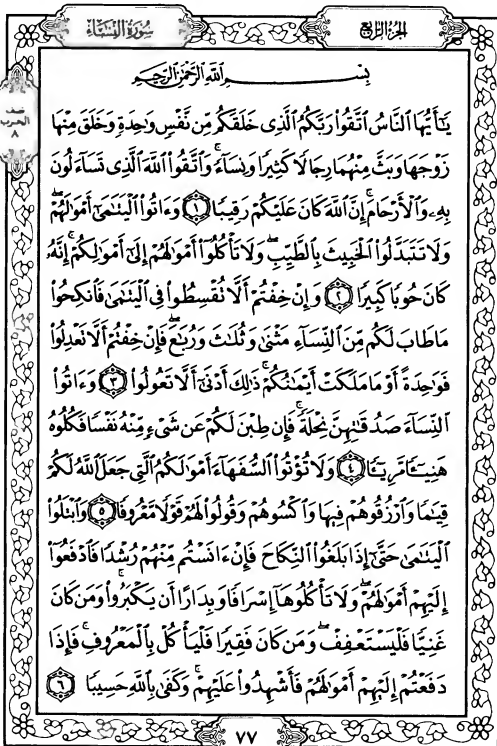 الجزء الرابع
سورة النساء
بِسْمِ ٱللَّهِ ٱلرَّحْمَٰنِ ٱلرَّحِيمِ
يَٰٓأَيُّهَا ٱلنَّاسُ ٱتَّقُوا۟ رَبَّكُمُ ٱلَّذِى خَلَقَكُم مِّن نَّفْسٍ وَٰحِدَةٍ وَخَلَقَ مِنْهَا
زَوْجَهَا وَبَثَّ مِنْهُمَا رِجَالًا كَثِيرًا وَنِسَآءً ۚ وَٱتَّقُوا۟ ٱللَّهَ ٱلَّذِى تَسَآءَلُونَ
بِهِۦ وَٱلْأَرْحَامَ ۚ إِنَّ ٱللَّهَ كَانَ عَلَيْكُمْ رَقِيبًا ١ وَءَاتُوا۟ ٱلْيَتَٰمَىٰٓ أَمْوَٰلَهُمْ ۖ
وَلَا تَتَبَدَّلُوا۟ ٱلْخَبِيثَ بِٱلطَّيِّبِ ۖ وَلَا تَأْكُلُوٓا۟ أَمْوَٰلَهُمْ إِلَىٰٓ أَمْوَٰلِكُمْ ۚ إِنَّهُۥ
كَانَ حُوبًا كَبِيرًا ٢ وَإِنْ خِفْتُمْ أَلَّا تُقْسِطُوا۟ فِى ٱلْيَتَٰمَىٰ فَٱنكِحُوا۟
مَا طَابَ لَكُم مِّنَ ٱلنِّسَآءِ مَثْنَىٰ وَثُلَٰثَ وَرُبَٰعَ ۖ فَإِنْ خِفْتُمْ أَلَّا تَعْدِلُوا۟
فَوَٰحِدَةً أَوْ مَا مَلَكَتْ أَيْمَٰنُكُمْ ۚ ذَٰلِكَ أَدْنَىٰٓ أَلَّا تَعُولُوا۟ ٣ وَءَاتُوا۟
ٱلنِّسَآءَ صَدُقَٰتِهِنَّ نِحْلَةً ۚ فَإِن طِبْنَ لَكُمْ عَن شَىْءٍ مِّنْهُ نَفْسًا فَكُلُوهُ
هَنِيٓـًٔا مَّرِيٓـًٔا ٤ وَلَا تُؤْتُوا۟ ٱلسُّفَهَآءَ أَمْوَٰلَكُمُ ٱلَّتِى جَعَلَ ٱللَّهُ لَكُمْ
قِيَٰمًا وَٱرْزُقُوهُمْ فِيهَا وَٱكْسُوهُمْ وَقُولُوا۟ لَهُمْ قَوْلًا مَّعْرُوفًا ٥ وَٱبْتَلُوا۟
ٱلْيَتَٰمَىٰ حَتَّىٰٓ إِذَا بَلَغُوا۟ ٱلنِّكَاحَ فَإِنْ ءَانَسْتُم مِّنْهُمْ رُشْدًا فَٱدْفَعُوٓا۟
إِلَيْهِمْ أَمْوَٰلَهُمْ ۖ وَلَا تَأْكُلُوهَآ إِسْرَافًا وَبِدَارًا أَن يَكْبَرُوا۟ ۚ وَمَن كَانَ
غَنِيًّا فَلْيَسْتَعْفِفْ ۖ وَمَن كَانَ فَقِيرًا فَلْيَأْكُلْ بِٱلْمَعْرُوفِ ۚ فَإِذَا
دَفَعْتُمْ إِلَيْهِمْ أَمْوَٰلَهُمْ فَأَشْهِدُوا۟ عَلَيْهِمْ ۚ وَكَفَىٰ بِٱللَّهِ حَسِيبًا ٦
٧٧
نصف
الحزب
٨